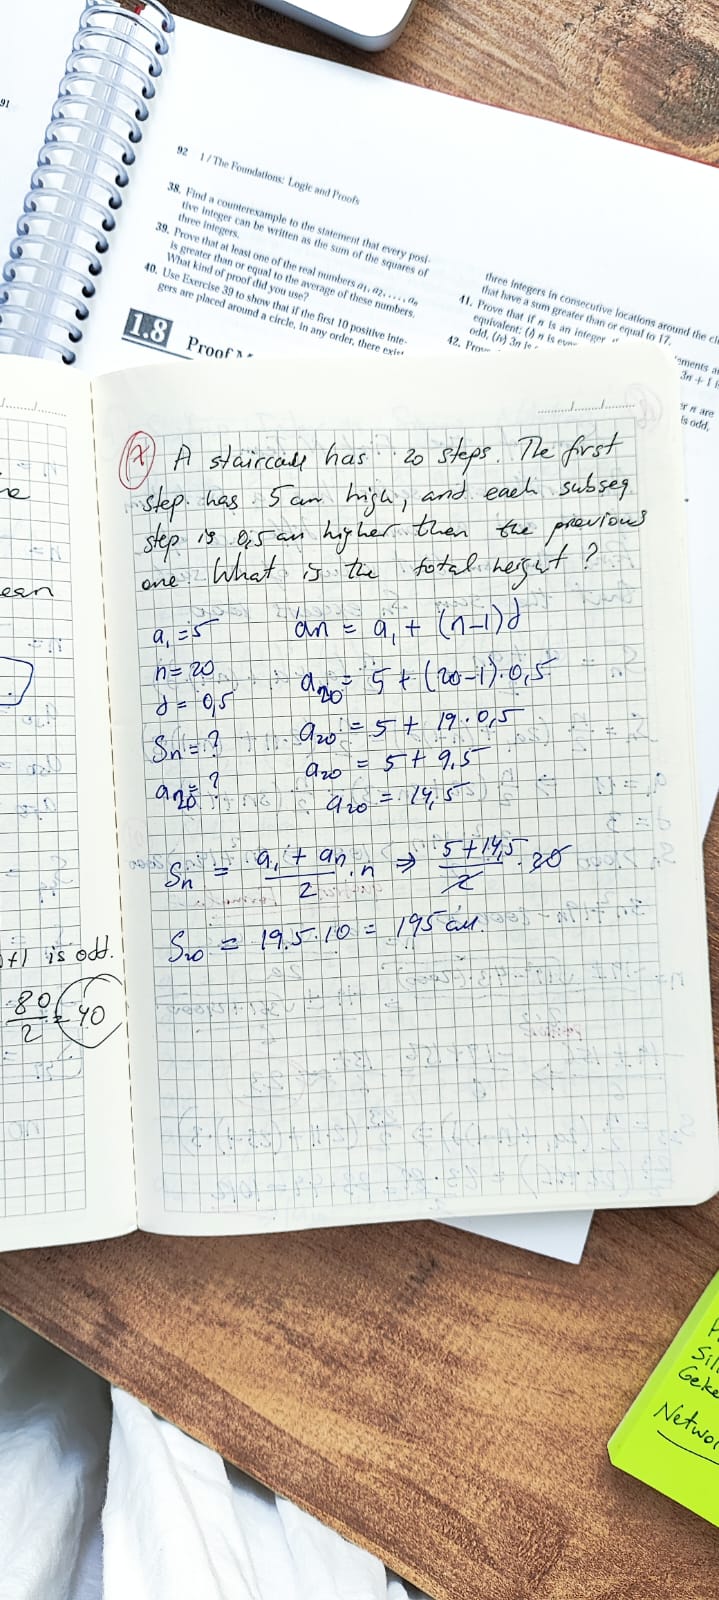 91
92 1 / The Foundations: Logic and Proofs
38. Find a counterexample to the statement that every posi-
tive integer can be written as the sum of the squares of
three integers.
39. Prove that at least one of the real numbers a₁, a₂, . . . , aₙ
is greater than or equal to the average of these numbers.
What kind of proof did you use?
40. Use Exercise 39 to show that if the first 10 positive inte-
gers are placed around a circle, in any order, there exist
three integers in consecutive locations around the ci
that have a sum greater than or equal to 17.
41. Prove that if n is an integer,
equivalent: (i) n is even
odd, (iv) 3n is
42. Prove
3n + 1 i
n are
is odd,
1.8 Proof M
A staircase has 20 steps. The first
step has 5 cm high, and each subseq
step is 0,5 cm higher then the previous
one. What is the total height?
a₁ = 5
n = 20
d = 0,5
Sn = ?
a20 = ?
an = a₁ + (n-1)d
a20 = 5 + (20-1)·0,5
a20 = 5 + 19·0,5
a20 = 5 + 9,5
a20 = 14,5
Sn = a₁ + an / 2 · n ⇒ 5 + 14,5 / 2 · 20
S20 = 19,5 · 10 = 195 cm.
ean
+1 is odd.
80/2 = 40
Sil
Geke
Networ